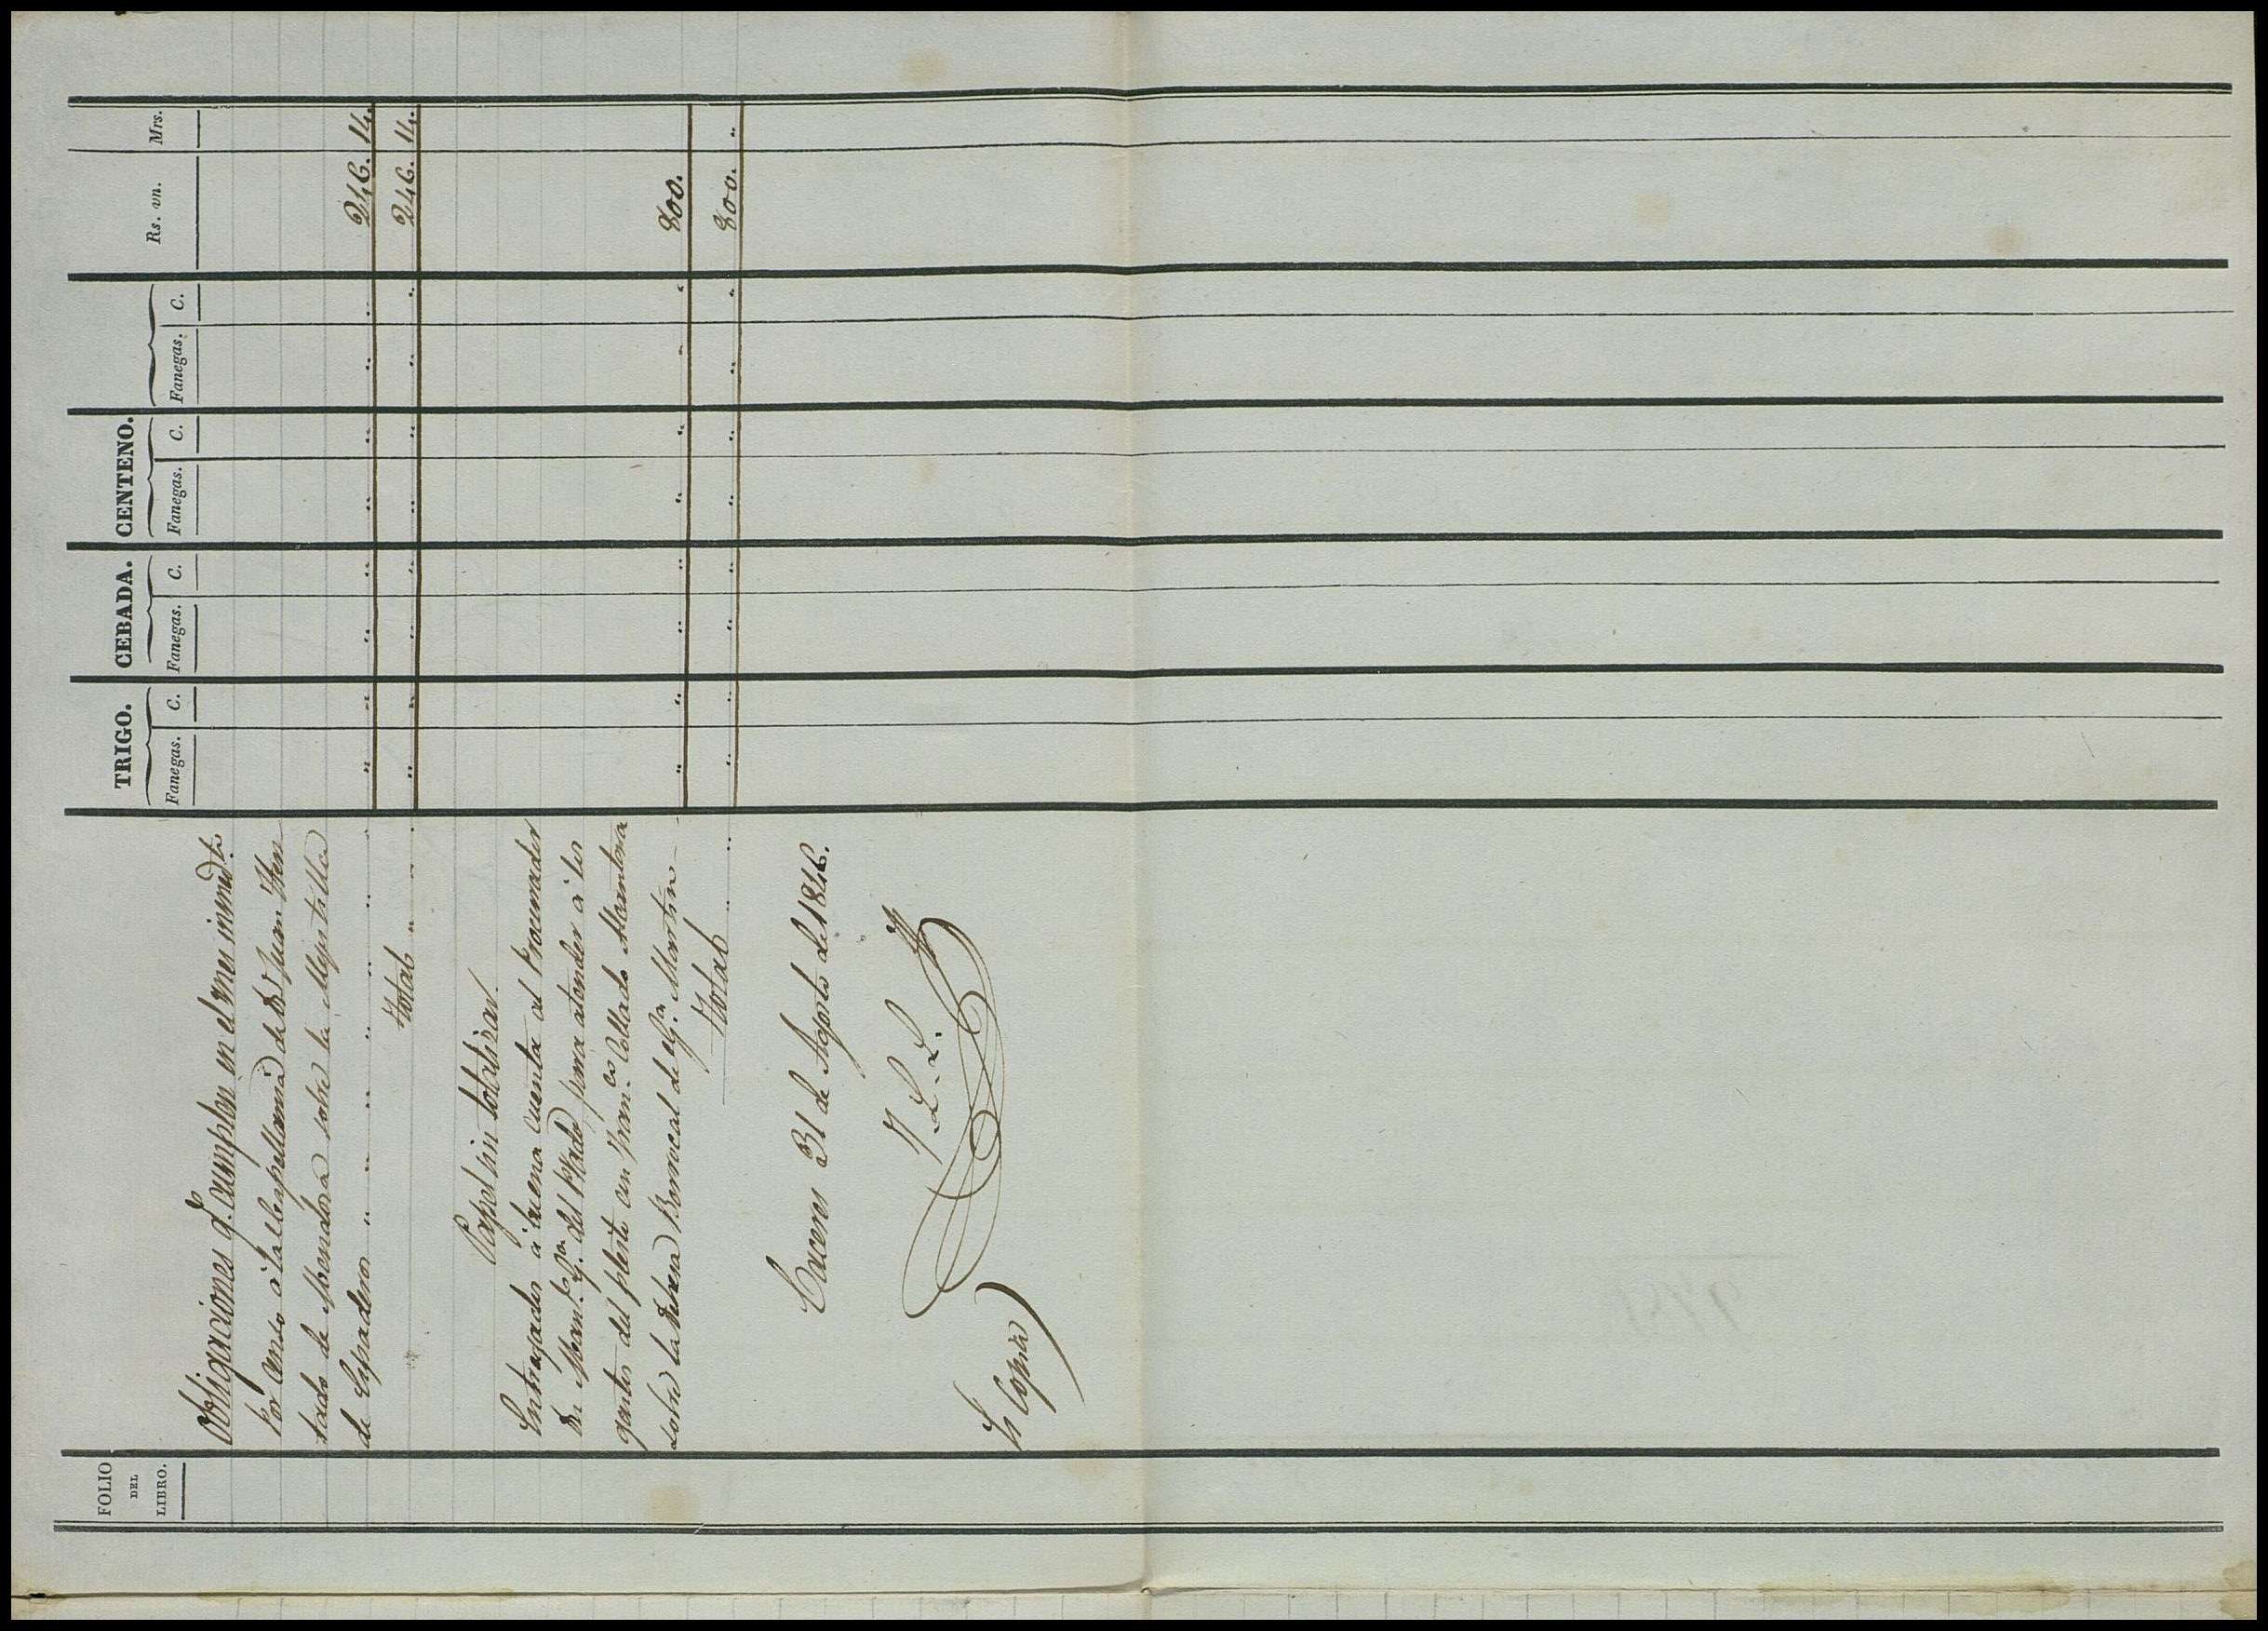 FOLIO
DEL
LIBRO.
TRIGO. CEBADA. CENTENO.
Fanegas. C. Fanegas. C. Fanegas. C. Fanegas. C. Rs. vn. Mrs.
Obligaciones q.e cumplen en el mes inmed.to
Por Censo á la Capellania de Dn Juan Hur
tado de Mendoza sobre la
de Espadero " " " " " " " " " " " " " " 246. 14.
Total " " " " " " " " " " 246. 14.
Papel sin totalizar.
Entregados á buena Cuenta al Procurador
Dn Man.l G.a del Prado para atender á los
gastos del pleito con Fran.co Collado
sobre la Dehesa Berrocal de G.a Martin " " " " " " " " 800.
Total " " " " " " " " " " 800. "
Caceres 31 de Agosto de 1846.
Es Copia